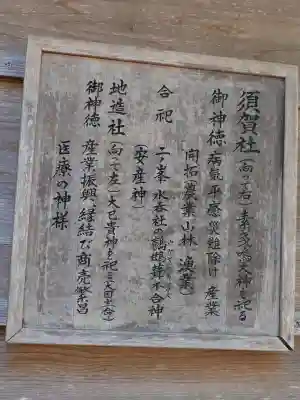 須賀社（向って右）素戔嗚大神を祀る
御神徳 病気平癒災難除け 産業
開拓（農業山林 漁業）
合祀 二ノ峯 水垂社の鵜鶿葺不合神
（安産神）
地造社（向って左）大己貴神を祀る（大国主命）
御神徳 産業振興、縁結び、商売繁昌
医療の神様